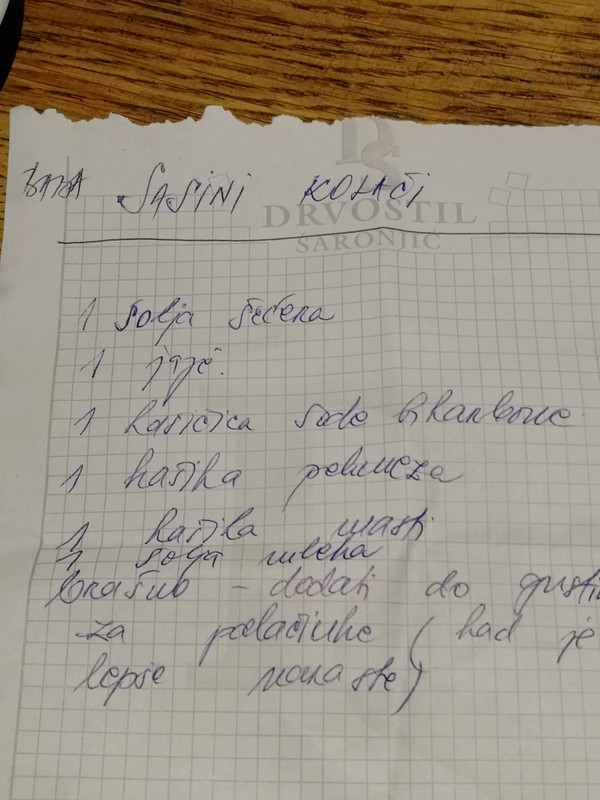 BABA SAŠINI KOLAČI
DRVOSTIL
ŠARONJIĆ
1 šolja šećera
1 jaje.
1 kašičica sode bikarbone
1 kašika pekmeza
1 kašika masti
1 šolja mleka
brašno - dodati do gusti
za palačinke (kad je
lepše naraste)